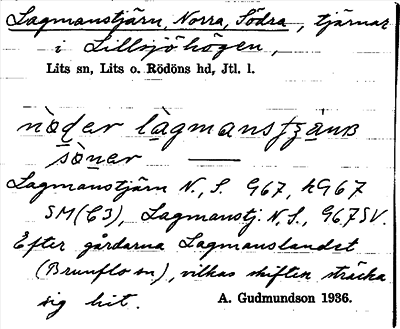 Lagmanstjärn, Norra, Södra, tjärnar
i Lillsjöhögen,
Lits sn, Lits o. Rödöns hd, Jtl. l.
söner
Lagmanstjärn N., S. G67, hG67
SM(C3), Lagmanstj. N. S., G67SV.
Efter gårdarna Lagmanslandet
(Brunflo sn), vilkas skiften sträcka
sig hit. A. Gudmundson 1936.